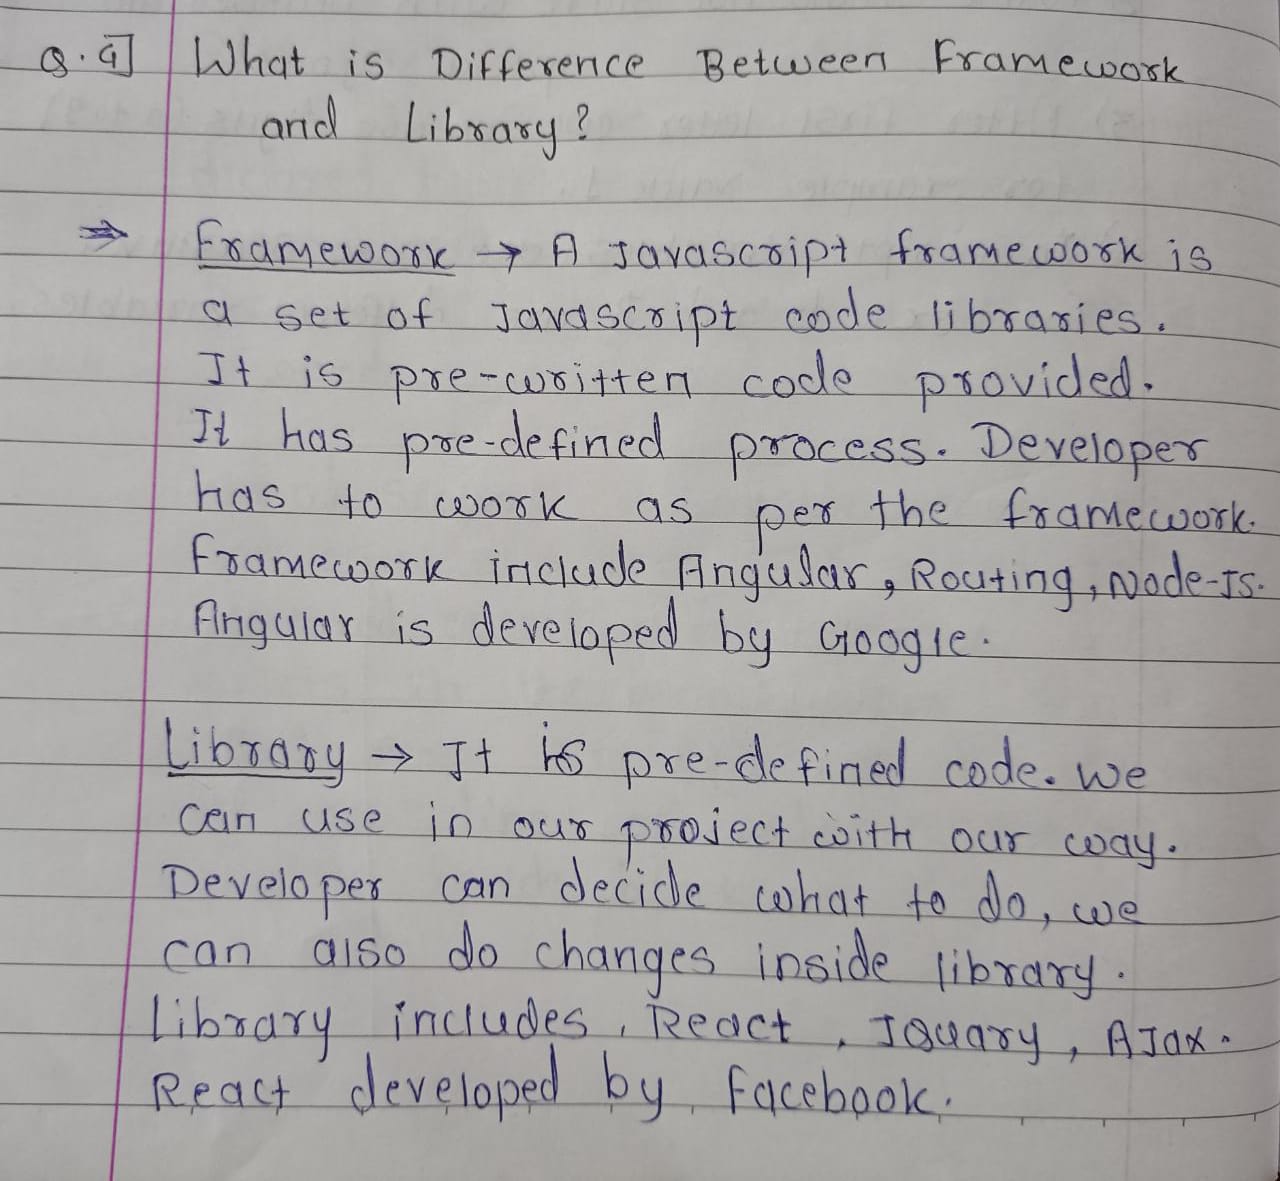 Q.4] What is Difference Between Framework
and Library?
⇒ Framework → A Javascript framework is
a set of Javascript code libraries.
It is pre-written code provided.
It has pre-defined process. Developer
has to work as per the framework.
Framework include Angular, Routing, Node-Js.
Angular is developed by Google.
Library → It is pre-defined code. we
can use in our project with our way.
Developer can decide what to do, we
can also do changes inside library.
Library includes, React, JQuary, AJax.
React developed by facebook.